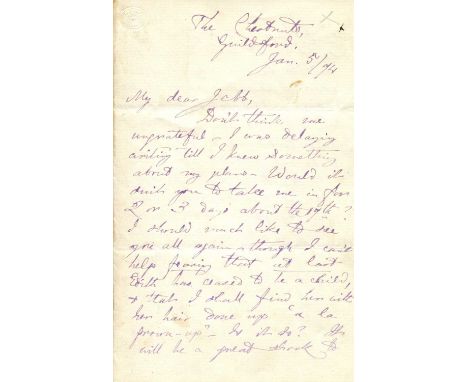 The Chestnuts,
Guildford.
Jan. 5/
My dear Jebb,
Don't think me
ungrateful - I was delaying
writing till I knew something
about my plans - Would it
suit you to take me in for
2 or 3 days about the ?
I should much like to see
you all again - though I can't
help fearing that at last
Edith has ceased to be a child,
& that I shall find her with
her hair done up "à la
grown-up" - Is it so? It
will be a great shock to